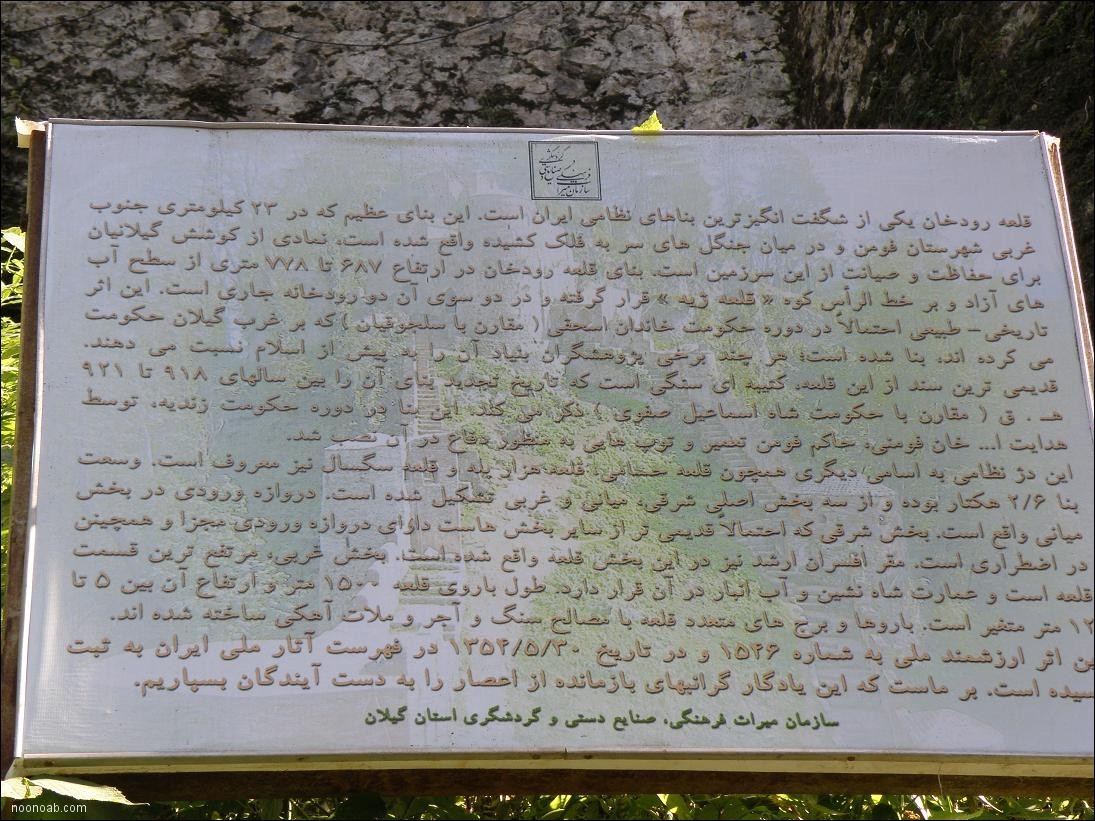 سازمان میراث فرهنگی صنایع دستی و گردشگری
قلعه رودخان یکی از شگفت انگیزترین بناهای نظامی ایران است. این بنای عظیم که در ۲۳ کیلومتری جنوب
غربی شهرستان فومن و در میان جنگل های سر به فلک کشیده واقع شده است، نمادی از کوشش گیلانیان
برای حفاظت و صیانت از این سرزمین است. بنای قلعه رودخان در ارتفاع ۶۸۷ تا ۷۷۸ متری از سطح آب
های آزاد و بر خط الرأس کوه « قلعه ژیه » قرار گرفته و در دو سوی آن دو رودخانه جاری است. این اثر
تاریخی - طبیعی احتمالاً در دوره حکومت خاندان اسحقی ( مقارن با سلجوقیان ) که بر غرب گیلان حکومت
می کرده اند، بنا شده است؛ هر چند برخی پژوهشگران بنیاد آن را به پیش از اسلام نسبت می دهند.
قدیمی ترین سند از این قلعه، کتیبه ای سنگی است که تاریخ تجدید بنای آن را بین سالهای ۹۱۸ تا ۹۲۱
هـ . ق ( مقارن با حکومت شاه اسماعیل صفوی ) ذکر می کند. این بنا در دوره حکومت زندیه، توسط
هدایت ا... خان فومنی، حاکم فومن تعمیر و توپ هایی به منظور دفاع در آن نصب شد.
این دژ نظامی به اسامی دیگری همچون قلعه حسامی، قلعه هزار پله و قلعه سگسال نیز معروف است. وسعت
بنا ۲/۶ هکتار بوده و از سه بخش اصلی شرقی، میانی و غربی تشکیل شده است. دروازه ورودی در بخش
میانی واقع است. بخش شرقی که احتمالاً قدیمی تر از سایر بخش هاست دارای دروازه ورودی مجزا و همچینن
در اضطراری است. مقر افسران ارشد نیز در این بخش قلعه واقع شده است. بخش غربی، مرتفع ترین قسمت
قلعه است و عمارت شاه نشین و آب انبار در آن قرار دارد. طول باروی قلعه ۱۵۰۰ متر و ارتفاع آن بین ۵ تا
۱۲ متر متغیر است. باروها و برج های متعدد قلعه با مصالح سنگ و آجر و ملات آهکی ساخته شده اند.
ین اثر ارزشمند ملی به شماره ۱۵۴۶ و در تاریخ ۱۳۵۴/۵/۳۰ در فهرست آثار ملی ایران به ثبت
سیده است. بر ماست که این یادگار گرانبهای بازمانده از اعصار را به دست آیندگان بسپاریم.
سازمان میراث فرهنگی، صنایع دستی و گردشگری استان گیلان
noonoab.com